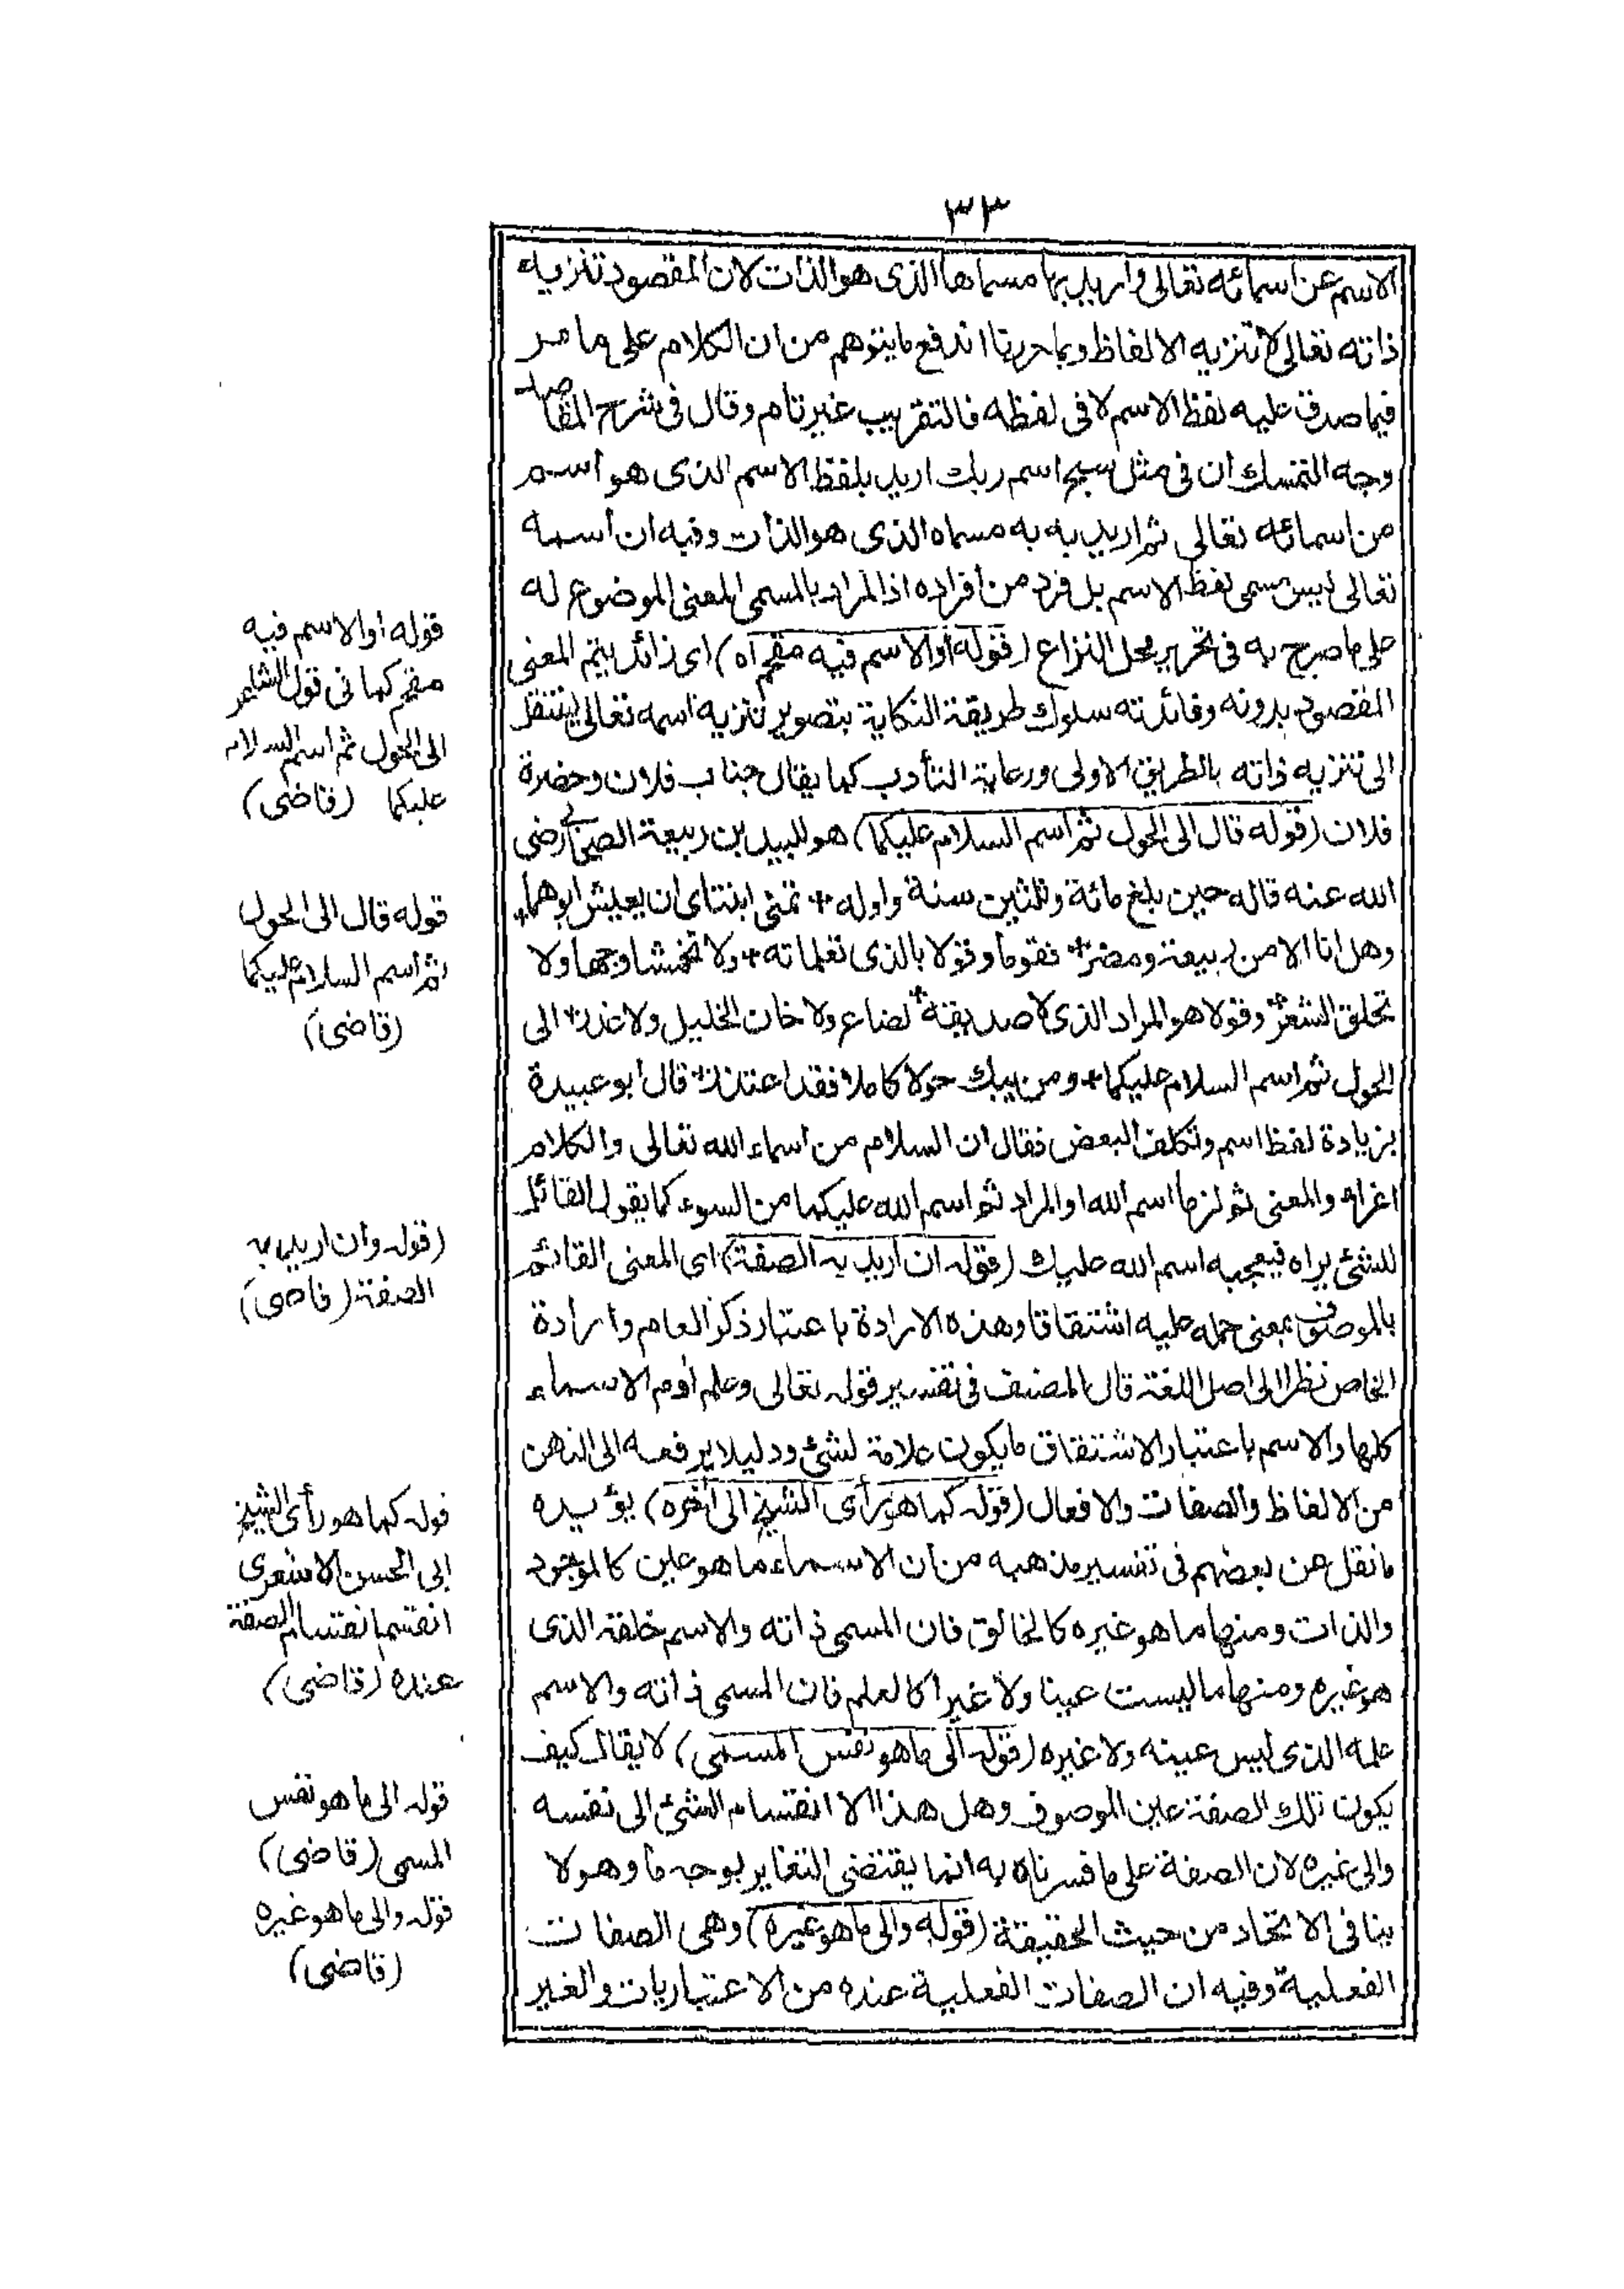 ٣٣
الاسم عن اسمائه تعالى واريد بها مسماها الذى هو الذات لان المقصود تنزيه
ذاته تعالى لا تنزيه الالفاظ وبما حررنا اندفع ما يتوهم من ان الكلام على ما مر
فيما صدق عليه لفظ الاسم لا فى لفظه فالتقريب غير تام وقال فى شرح المقاصد
وجه التمسك ان فى مثل سبح اسم ربك اريد بلفظ الاسم الذى هو اسم
من اسمائه تعالى ثم اريد به به مسماه الذى هو الذات وفيه ان اسمه
تعالى ليس مسمى لفظ الاسم بل فرد من افراده اذ المراد بالمسمى المعنى الموضوع له
على ما صرح به فى تحرير محل النزاع (قوله أو الاسم فيه مقحم اه) اى زائد يتم المعنى
المقصود بدونه وفائدته سلوك طريقة الكناية بتصوير تنزيه اسمه تعالى لينتقل
الى تنزيه ذاته بالطريق الاولى ورعاية التأدب كما يقال جناب فلان وحضرة
فلان (قوله قال الى الحول ثم اسم السلام عليكما) هو لبيد بن ربيعة الصحابى رضى
الله عنه قاله حين بلغ مائة وثلثين سنة واوله + تمنى ابنتاى ان يعيش ابوهما +
وهل انا الا من ربيعة ومضر + فقوما وقولا بالذى تعلمانه + ولا تخمشا وجها ولا
تحلقا الشعر + وقولا هو المراد الذى لا صديقه + اضاع ولا خان الخليل ولا غدر + الى
الحول ثم اسم السلام عليكما + ومن يبك حولا كاملا فقد اعتذر + قال ابو عبيدة
بزيادة لفظ اسم وتكلف البعض فقال ان السلام من اسماء الله تعالى والكلام
اغراء والمعنى ثم لزما اسم الله او المراد ثم اسم الله عليكما من السوء كما يقول القائل
للشئ يراه فيعجبه اسم الله عليك (قوله ان اريد به الصفة) اى المعنى القائم
بالموصوف بمعنى حمله عليه اشتقاقا وهذه الارادة باعتبار ذكر العام وارادة
الخاص نظرا الى اصل اللغة قال المصنف فى تفسير قوله تعالى وعلم أدم الاسماء
كلها والاسم باعتبار الاشتقاق ما يكون علامة لشئ ودليلا يرفعه الى الذهن
من الالفاظ والصفات والافعال (قوله كما هو رأى الشيخ الى أخره) يؤيده
ما نقل عن بعضهم فى تفسير مذهبه من ان الاسماء ما هو عين كالموجود
والذات ومنها ما هو غيره كالخالق فان المسمى ذاته والاسم خلقه الذى
هو غيره ومنها ما ليست عينا ولا غيرا كالعلم فان المسمى ذاته والاسم
علمه الذى ليس عينه ولا غيره (قوله الى ما هو نفس المسمى) لا يقال كيف
يكون تلك الصفة عين الموصوف وهل هذا الا انقسام الشئ الى نفسه
والى غيره لان الصفة على ما فسرناه به انما يقتضى التغاير بوجه ما وهو لا
ينافى الاتحاد من حيث الحقيقة (قوله والى ما هو غيره) وهى الصفات
الفعلية وفيه ان الصفات الفعلية عنده من الاعتباريات والغير
قوله أو الاسم فيه
مقحم كما فى قول الشاعر
الى الحول ثم اسم السلام
عليكما (قاضى)
قوله قال الى الحول
ثم اسم السلام عليكما
(قاضى)
(قوله وان اريد به
الصفة (قاضى)
قوله كما هو رأى الشيخ
ابى الحسن الاشعرى
انقسم انقسام الصفة
عنده (قاضى)
قوله الى ما هو نفس
المسمى (قاضى)
قوله والى ما هو غيره
(قاضى)